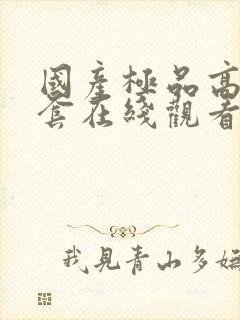 國產極品高
套在綫觀看
我見青山多嫵